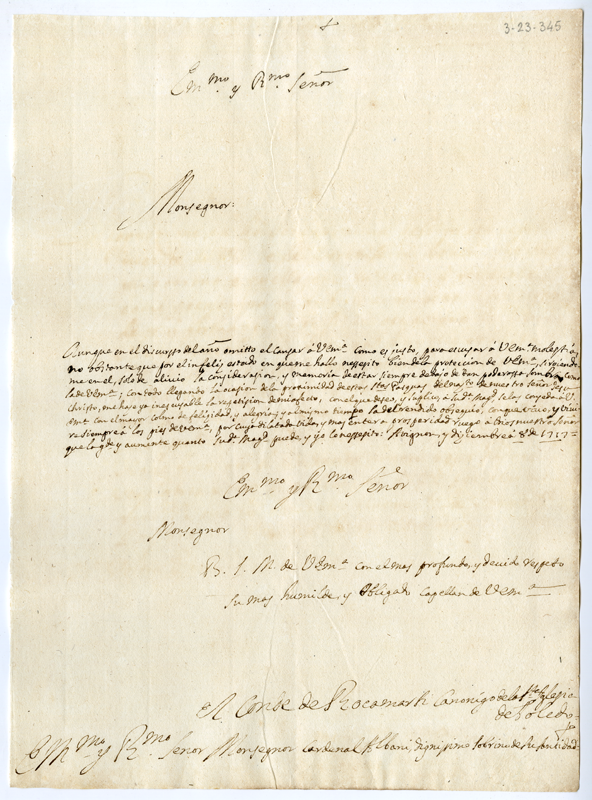 3-23-345
Em.mo y R.mo Señor
Monsegnor:
Aunque en el discurso del año omitto el cansar à VEm.a como es justo, para escusar à VEm.a molestia,
no obstante que por el infelis estado en que me hallo nessesito bien de la proteccion de VEm.a, sirviendo
me en el solo de alivio la consideracion, y memoria de estar siempre debajo de tan poderossa sombra, como
la de VEm.a; con todo llegando la ocasion de la proximidad de estas S.tas Pasquas del nas.to de nuestro Señor Jesu
Christo, me hase ya inescusable la repetision de mi afecto, con el que deseo, y suplico à Su Mag.d se las conseda à V
Em.a con el mayor colmo de felisidad, y alegria, y al mismo tiempo la del rendido obsequio, con que vivo, y vivi
re siempre à los pies de VEm.a, por cuya dilatada vida, y mas entera prosperidad ruego à Dios nuestro Señor
que la g.de y aumente quanto su D.a Mag.d puede, y yo lo nessesito: Avignon, y Disiembre à 8 de 1717
Em.mo y R.mo Señor
Monsegnor
B. L. M. de VEm.a con el mas profundo, y devido respeto
su mas humilde, y obligado capellan de VEm.a
El Conde de Rocamarti Canonigo de la S.ta Iglesia
de Toledo
Em.mo y R.mo Señor Monsegnor Cardenal Albani dignissimo sobrino de su santidad